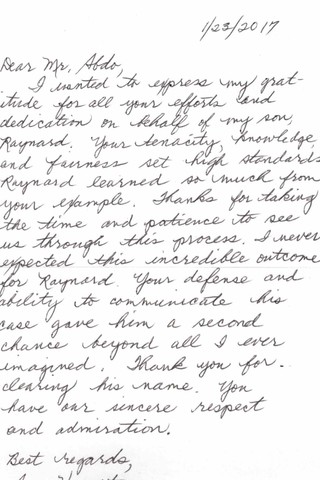 1/23/2017
Dear Mr. Abdo,
I wanted to express my grat-
itude for all your efforts and
dedication on behalf of my son,
Raynard. Your tenacity, knowledge,
and fairness set high standards
Raynard learned so much from
your example. Thanks for taking
the time and patience to see
us through this process. I never
expected this incredible outcome
for Raynard. Your defense and
ability to communicate his
case gave him a second
chance beyond all I ever
imagined. Thank you for
clearing his name. You
have our sincere respect
and admiration.
Best regards,